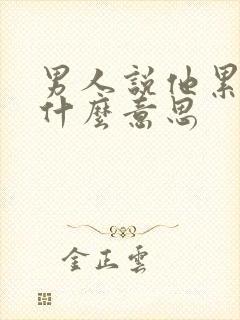 男人說他累
什麼意思
金正雲